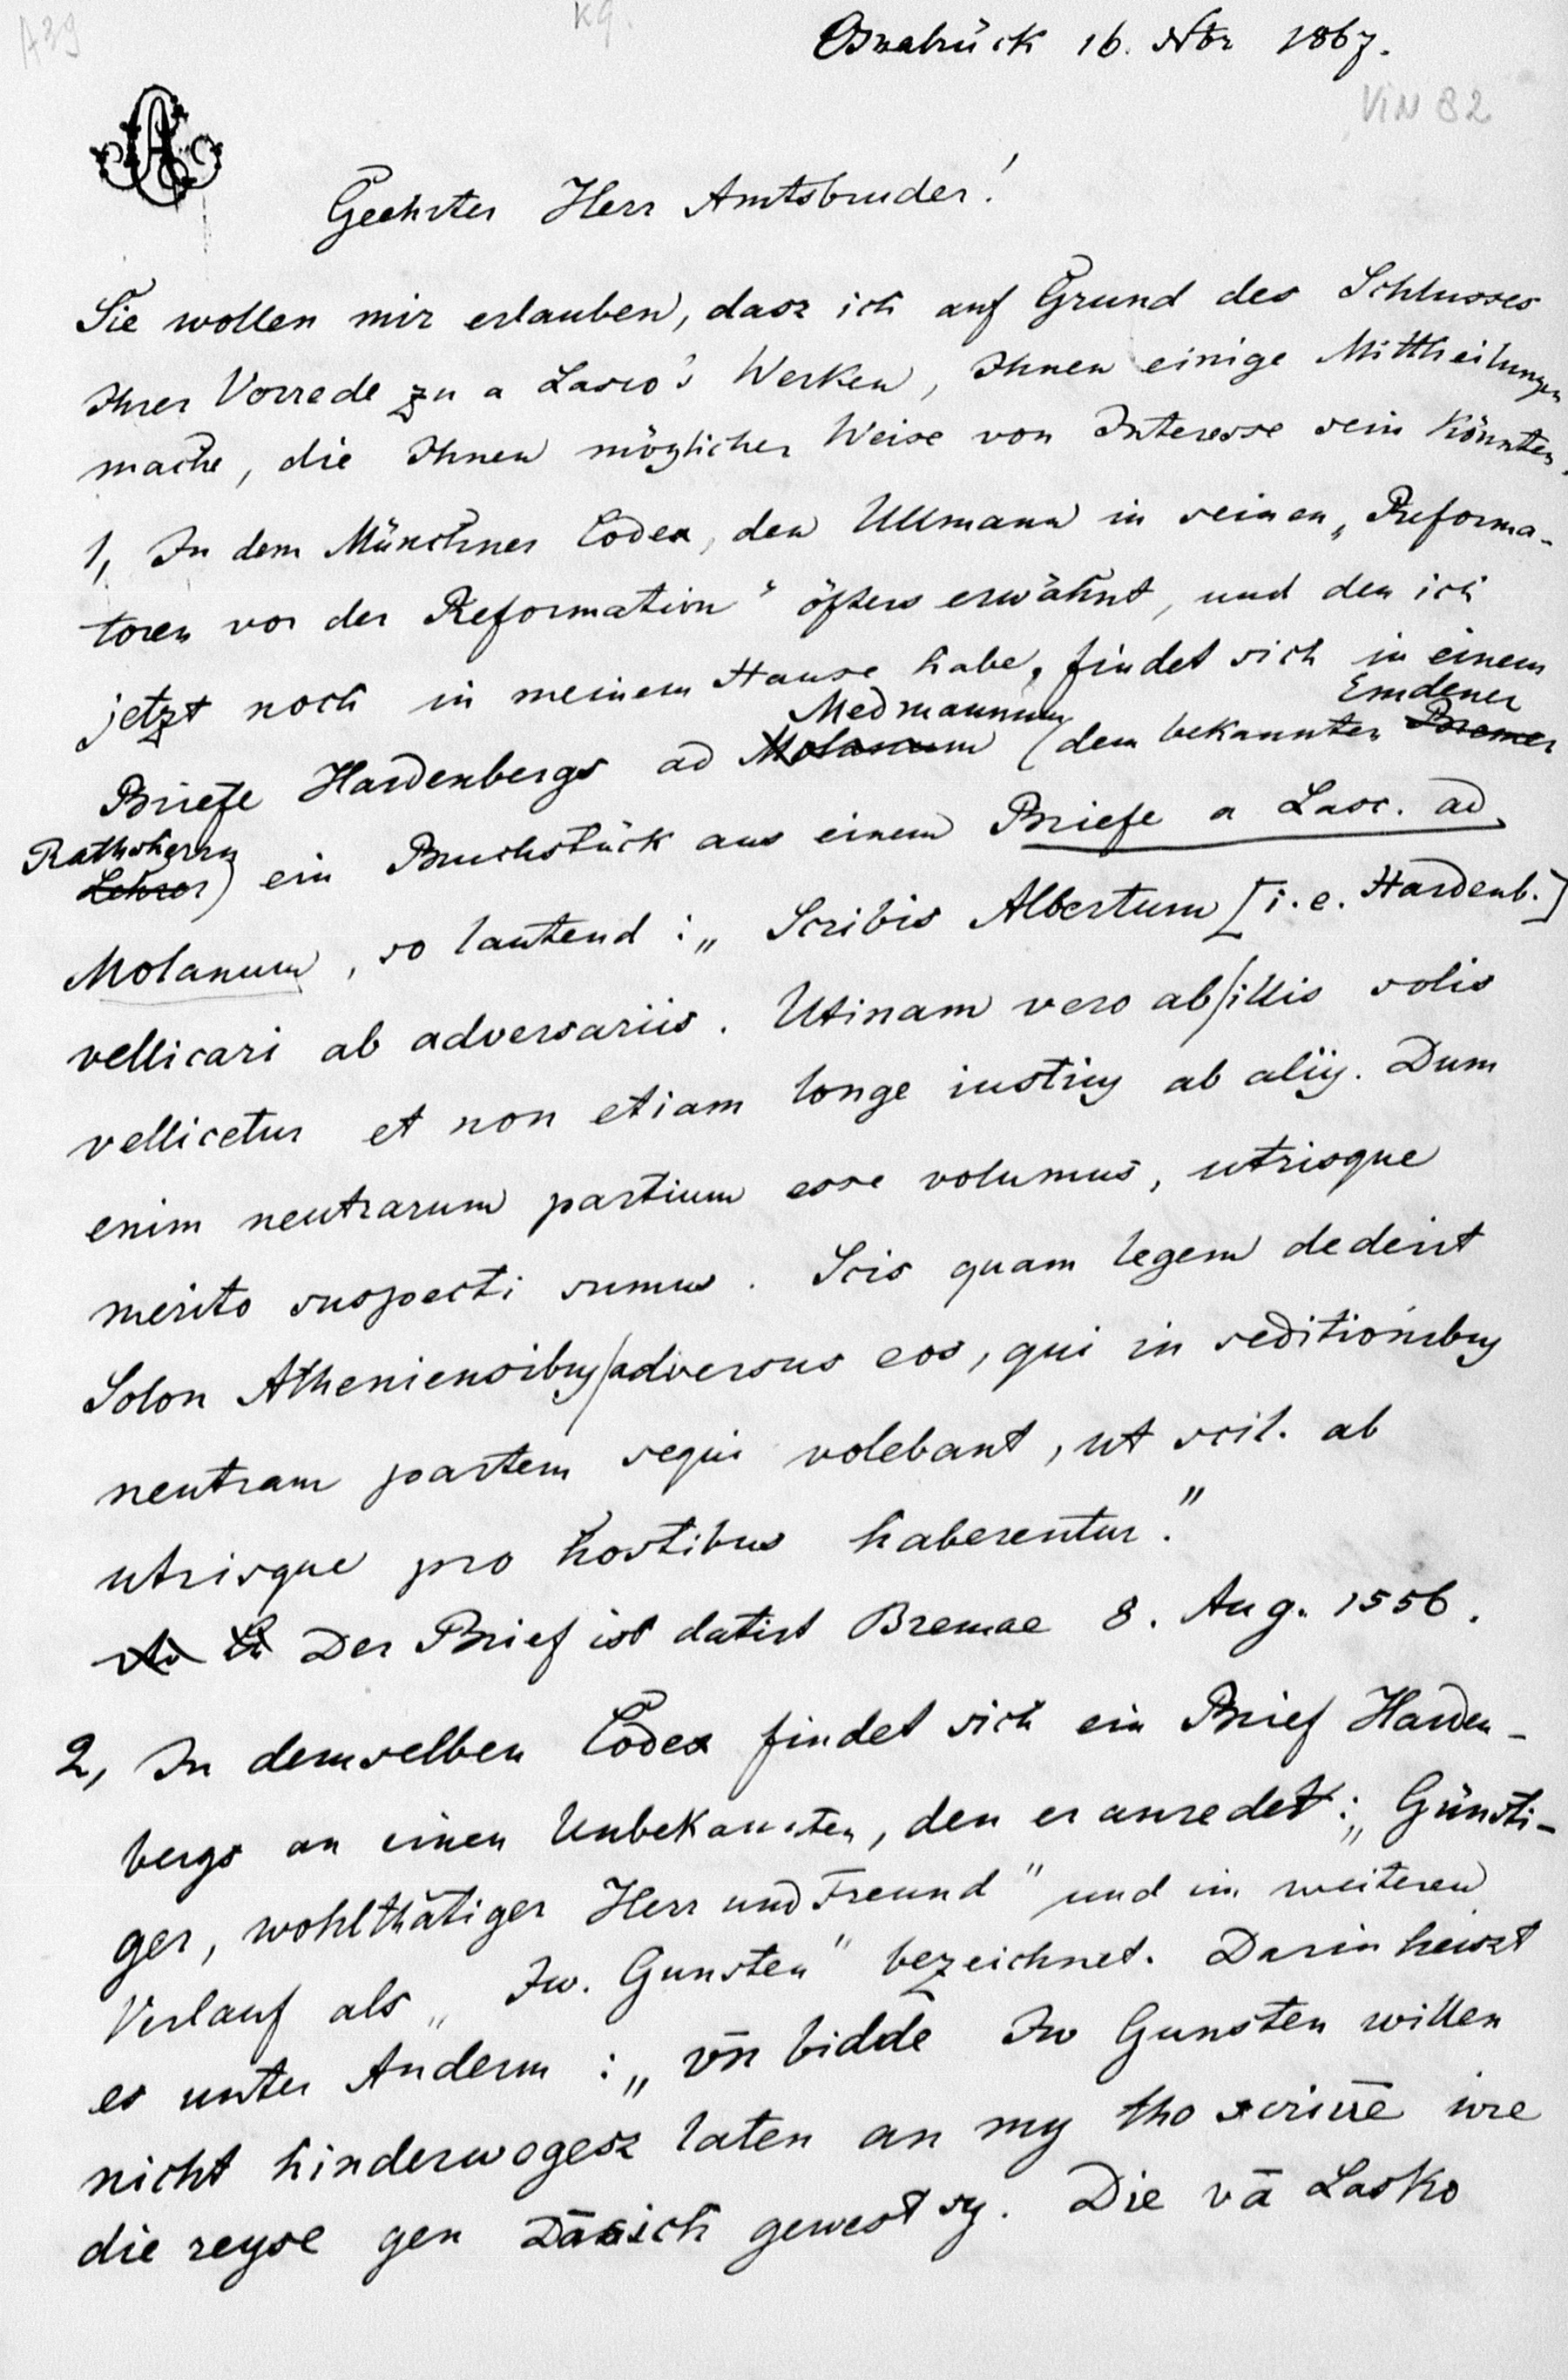 A39
K9.
Osnabrück 16. Nbr 1867.
VIN 82
Geehrter Herr Amtsbruder!
Sie wollen mir erlauben, dasz ich auf Grund des Schlusses
Ihrer Vorrede zu a Lasco's Werken, Ihnen einige Mittheilungen
mache, die Ihnen möglicher Weise von Interesse sein könnten.
1, In dem Münchner Codex, den Ullmann in seinen „Reforma-
toren vor der Reformation" öfters erwähnt, und den ich
jetzt noch in meinem Hause habe, findet sich in einem
Medmannum Emdener
Briefe Hardenbergs ad Molanum (dem bekannten Bremer
Rathsherrn
Lehrer) ein Bruchstück aus einem Briefe a Lasc. ad
Molanum, so lautend: „Scribis Albertum [i.e. Hardenb.]
vellicari ab adversariis. Utinam vero ab/illis solis
vellicetur et non etiam longe iustius ab aliis. Dum
enim neutrarum partium esse volumus, utrisque
merito suspecti sumus. Scis quam legem dederit
Solon Atheniensibus/adversus eos, qui in seditionibus
neutram partem sequi volebant, ut scil. ab
utrisque pro hostibus haberentur."
Der Brief ist datirt Bremae 8. Aug. 1556.
2, In demselben Codex findet sich ein Brief Harden-
bergs an einen Unbekannten, den er anredet: „Günsti-
ger, wohlthätiger Herr und Freund" und im weiteren
Verlauf als „Iw. Gunsten" bezeichnet. Darin heiszt
es unter Anderm: „vn̄ bidde Iw Gunsten willen
nicht hinderwegesz laten an my tho ire
die reyse gen gewest sy. Die vā Lasko